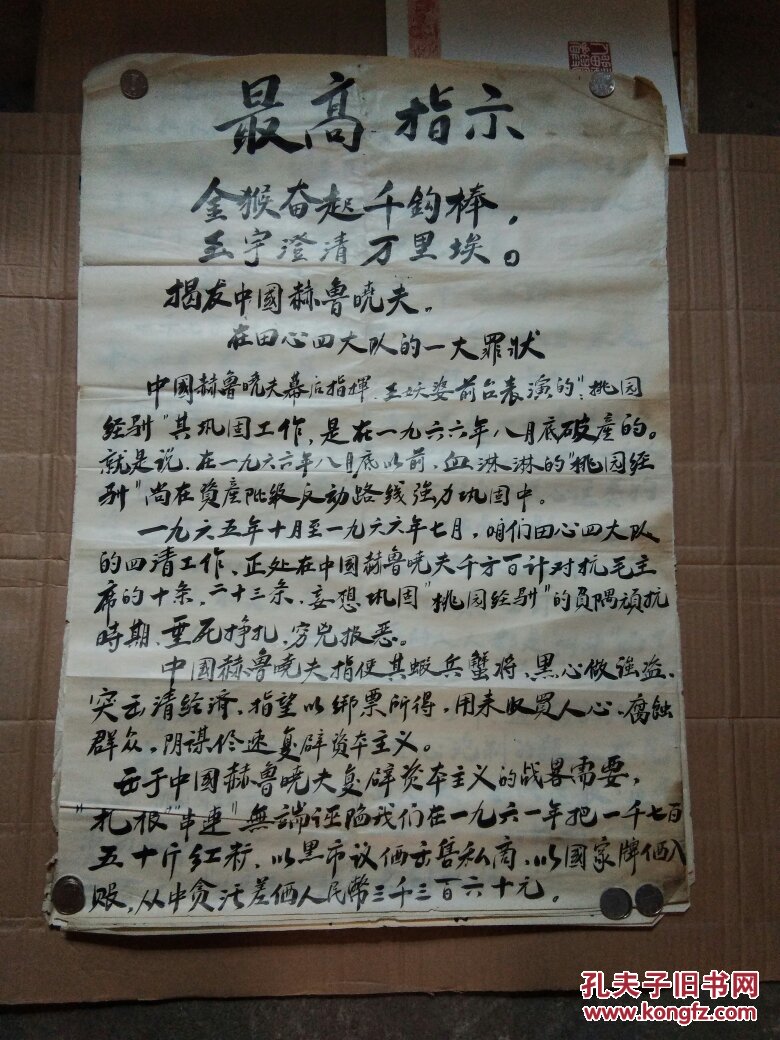 最高指示
金猴奋起千鈞棒,
玉宇澄清万里埃。
揭发中國赫鲁曉夫。
在田心四大队的一大罪状
中國赫鲁曉夫幕后指揮、王妖婆前台表演的"桃园
经驯"其巩固工作,是在一九六六年八月底破產的。
就是说、在一九六六年八月底以前,血淋淋的"桃园经
驯"尚在資產阶级反动路线強力巩固中。
一九六五年十月至一九六六年七月,咱们田心四大队
的四清工作、正处在中國赫鲁曉夫千方百计对抗毛主
席的十条,二十三条,妄想巩固"桃园经驯"的負隅頑抗
時期、垂死挣扎,穷兇报恶。
中國赫鲁曉夫指使其蝦兵蟹将、黑心做強盗、
突击清经濟,指望以绑票所得,用来收買人心、腐蝕
群众,阴谋 速复辟资本主义。
出于中國赫鲁曉夫复辟资本主义的战畧需要,
"扎根""串連"無端诬陷我们在一九六一年把一千七百
五十斤红籽、以黑市议価出售私商、以國家牌価入
賬,从中贪污差価人民幣三千三百六十元。
孔夫子旧书网
kongfz.com